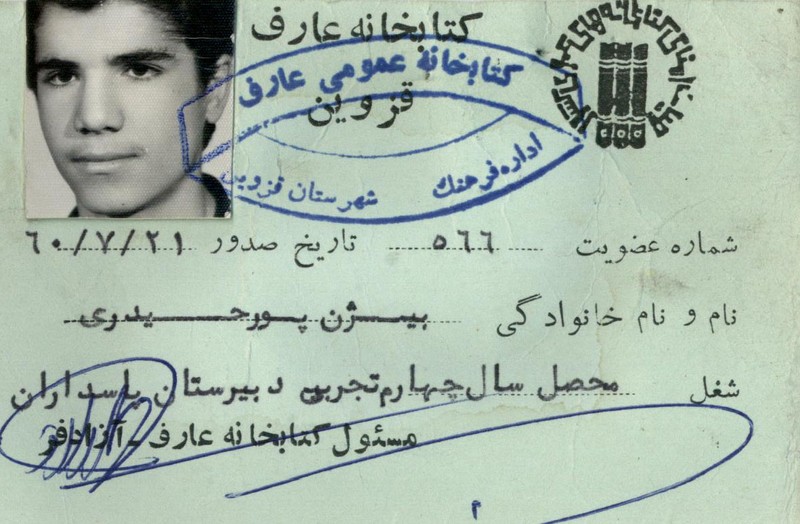 کتابخانه عارف
قزوین
کتابخانهٔ عمومی عارف
اداره فرهنگ
شهرستان قزوین
شماره عضویت ۵۶۶ تاریخ صدور ۶۰/۷/۲۱
نام و نام خانوادگی بیژن پورحیدری
شغل محصل سال چهارم تجربی دبیرستان پاسداران
مسئول کتابخانه عارف - آزادفر